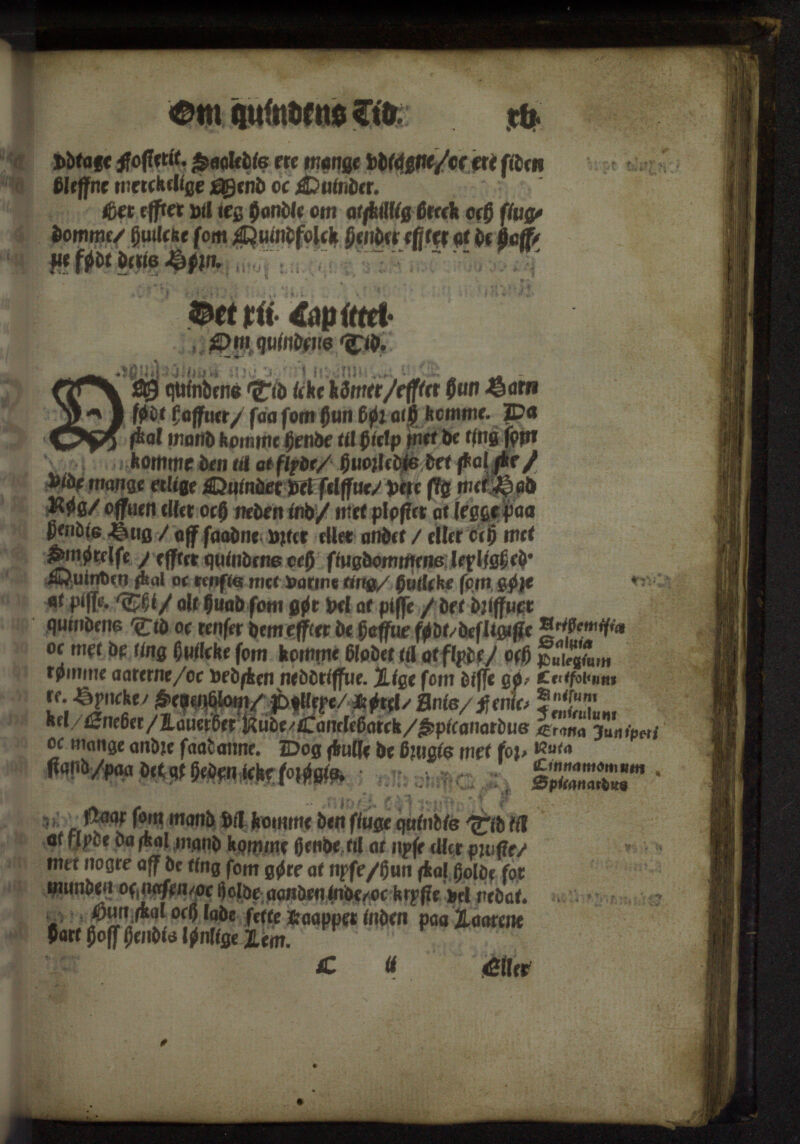 Om quindens Tid. xix
vdtagc Hostetit. Saaledis ere mange vdtagne/oc ere siden
bleffne merckelige Mend oc Quinder.
Her effter vil ieg handle om atskillig breck och siug-
domme/ huilcke som Quindfolck hender effter at de haff-
ue født deris Børn.
Det xii. Capittel.
Om quindens Tid.
NAar quindens Tid icke kommer/effter hun Barn
født haffuer/ saa som hun bør atih komme. Da
skal mand komme hende til hielp met de ting som
komme den til at flyde/ huorledis det skal ske/
vide mange erlige Quinder vel selffue/ vere sig met Bad
Røg/ offuen eller och neden ind/ met ploster at legge paa
hendis Bug / aff saadne vrter eller andet / eller och met
Smørelse / effter quindens och siugdommens leylighed.
Quinden skal oc renses met varme ting/ huilcke som gøre
at pisse. Thi/ alt huad som gør vel at pisse / det driffuer
quindens Tid oc renser dem effter de haffue født/desligiste
oc met de ting huilcke som komme blodet til at flyde/ och
rømme aarerne/oc vedsken nedd riffue. Lige som disse gø-
re. Byncke/ Hegenblom/ Pollepe/ Kørtel/ Anis/ Fenic-
kel/ Enebet/Lauerber Rude/Candebarck/Spicanardus
oc mange andre saadanne. Dog skulle de brugis met for-
stand/paa det at heden icke forøgis.
Artemisia
Salvia
Pulegium
Cerifolium
Anisum
Feniculum
Grana Juniperi
Ruta
Cinnamomum
Spicanardus
Naar som mand vil komme den siuge quindis Tid til
at flyde da skal mand komme hende til at nyse eller pruste/
met nogre aff de ting som gøre at nyse/hun skal holde for
munden oc nesen/oc holde aanden inde/oc kryste vel nedad.
Hun skal och lade sette Kaapper inden paa Laarene
hart hoff hendis lønlige Lem.
C ii Eller